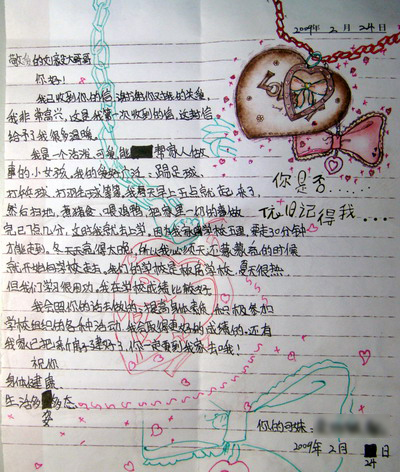 2009年2月24日
敬爱的
大哥哥
你好!
我已收到你的信,谢谢你对我的关爱,
我非常高兴,这是我第一次收到的信,这封信
给予了我很多温暖。
我是一个活泼、可爱
帮家人做
事的小女孩,我的爱好广泛:踢足球,
打乒乓球、打羽毛球等等。我每天早上五点就起来了
然后扫地,煮猪食,喂鸡鸭,把家里一切的事做
完已7点几分,这时我就去上学,因为我离学校不远,要走30分钟
才能走到。冬天天亮得太晚,所以我必须天还
的时候
就开始向学校走去。我们的学校是板房学校,夏天很热
但我们学习很用功,我在学校成绩比较好
我会因你的话去做的:提高身体素质,积极参加
学校组织的各种活动,我会取得更好的成绩的。还有
我家已把新房子建好了,你一定要到我家去哦!
祝你
身体健康
生活多
多态
姿
你是否……
依旧记得我……
你的可妹:
2009年2月
日
24